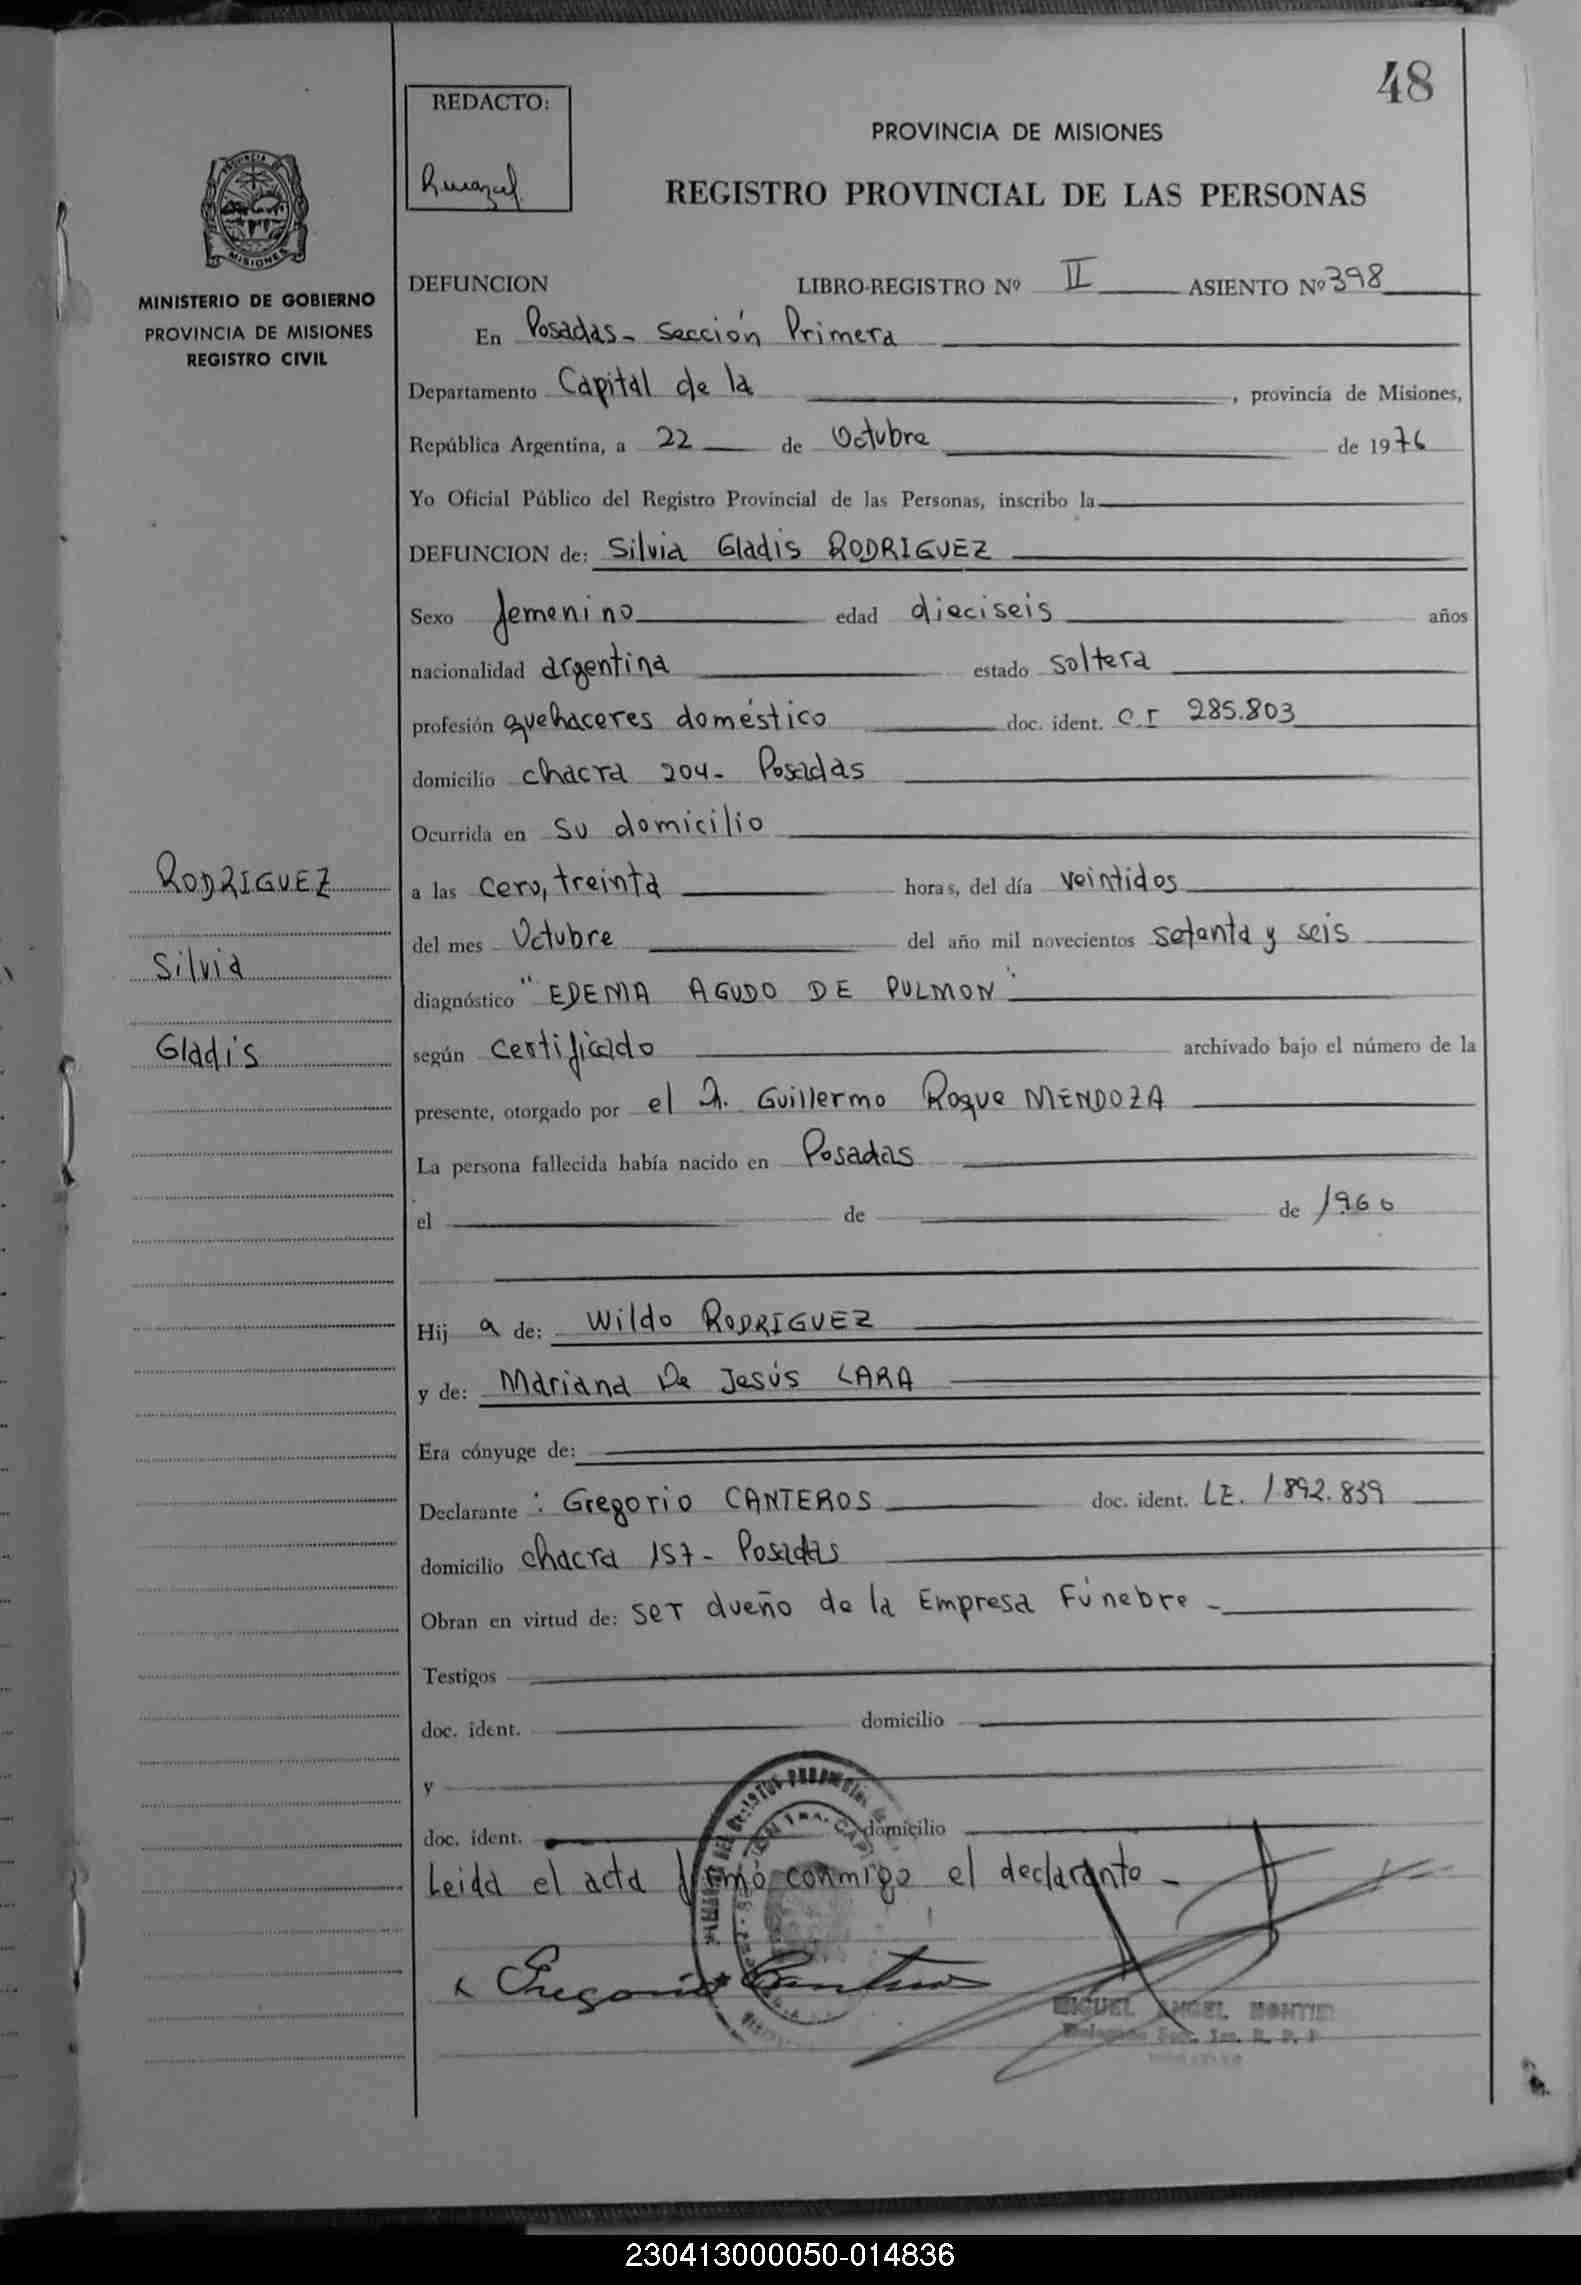 48
REDACTO:
PROVINCIA DE MISIONES
REGISTRO PROVINCIAL DE LAS PERSONAS
PROVINCIA DE
MISIONES
MINISTERIO DE GOBIERNO
PROVINCIA DE MISIONES
REGISTRO CIVIL
DEFUNCION LIBRO-REGISTRO Nº II ASIENTO Nº 398
En Posadas - Sección Primera
Departamento Capital de la , provincia de Misiones,
República Argentina, a 22 de Octubre de 1976
Yo Oficial Público del Registro Provincial de las Personas, inscribo la
DEFUNCION de: Silvia Gladis RODRIGUEZ
Sexo femenino edad dieciseis años
nacionalidad argentina estado soltera
profesión quehaceres doméstico doc. ident. C.I 285.803
domicilio chacra 204- Posadas
Ocurrida en su domicilio
RODRIGUEZ
Silvia
Gladis
a las cero, treinta horas, del día veintidos
del mes Octubre del año mil novecientos setenta y seis
diagnóstico "EDEMA AGUDO DE PULMON"
según certificado archivado bajo el número de la
presente, otorgado por el D. Guillermo Roque MENDOZA
La persona fallecida había nacido en Posadas
el de de 1960
Hij a de: Wildo RODRIGUEZ
y de: Mariana De Jesús LARA
Era cónyuge de:
Declarante : Gregorio CANTEROS doc. ident. LE. 1.892.839
domicilio chacra 157- Posadas
Obran en virtud de: ser dueño de la Empresa Fúnebre -
Testigos
doc. ident. domicilio
y
doc. ident. domicilio
Leida el acta firmó conmigo el declarante -
Gregorio Canteros
MIGUEL ANGEL MONTIEL
230413000050-014836